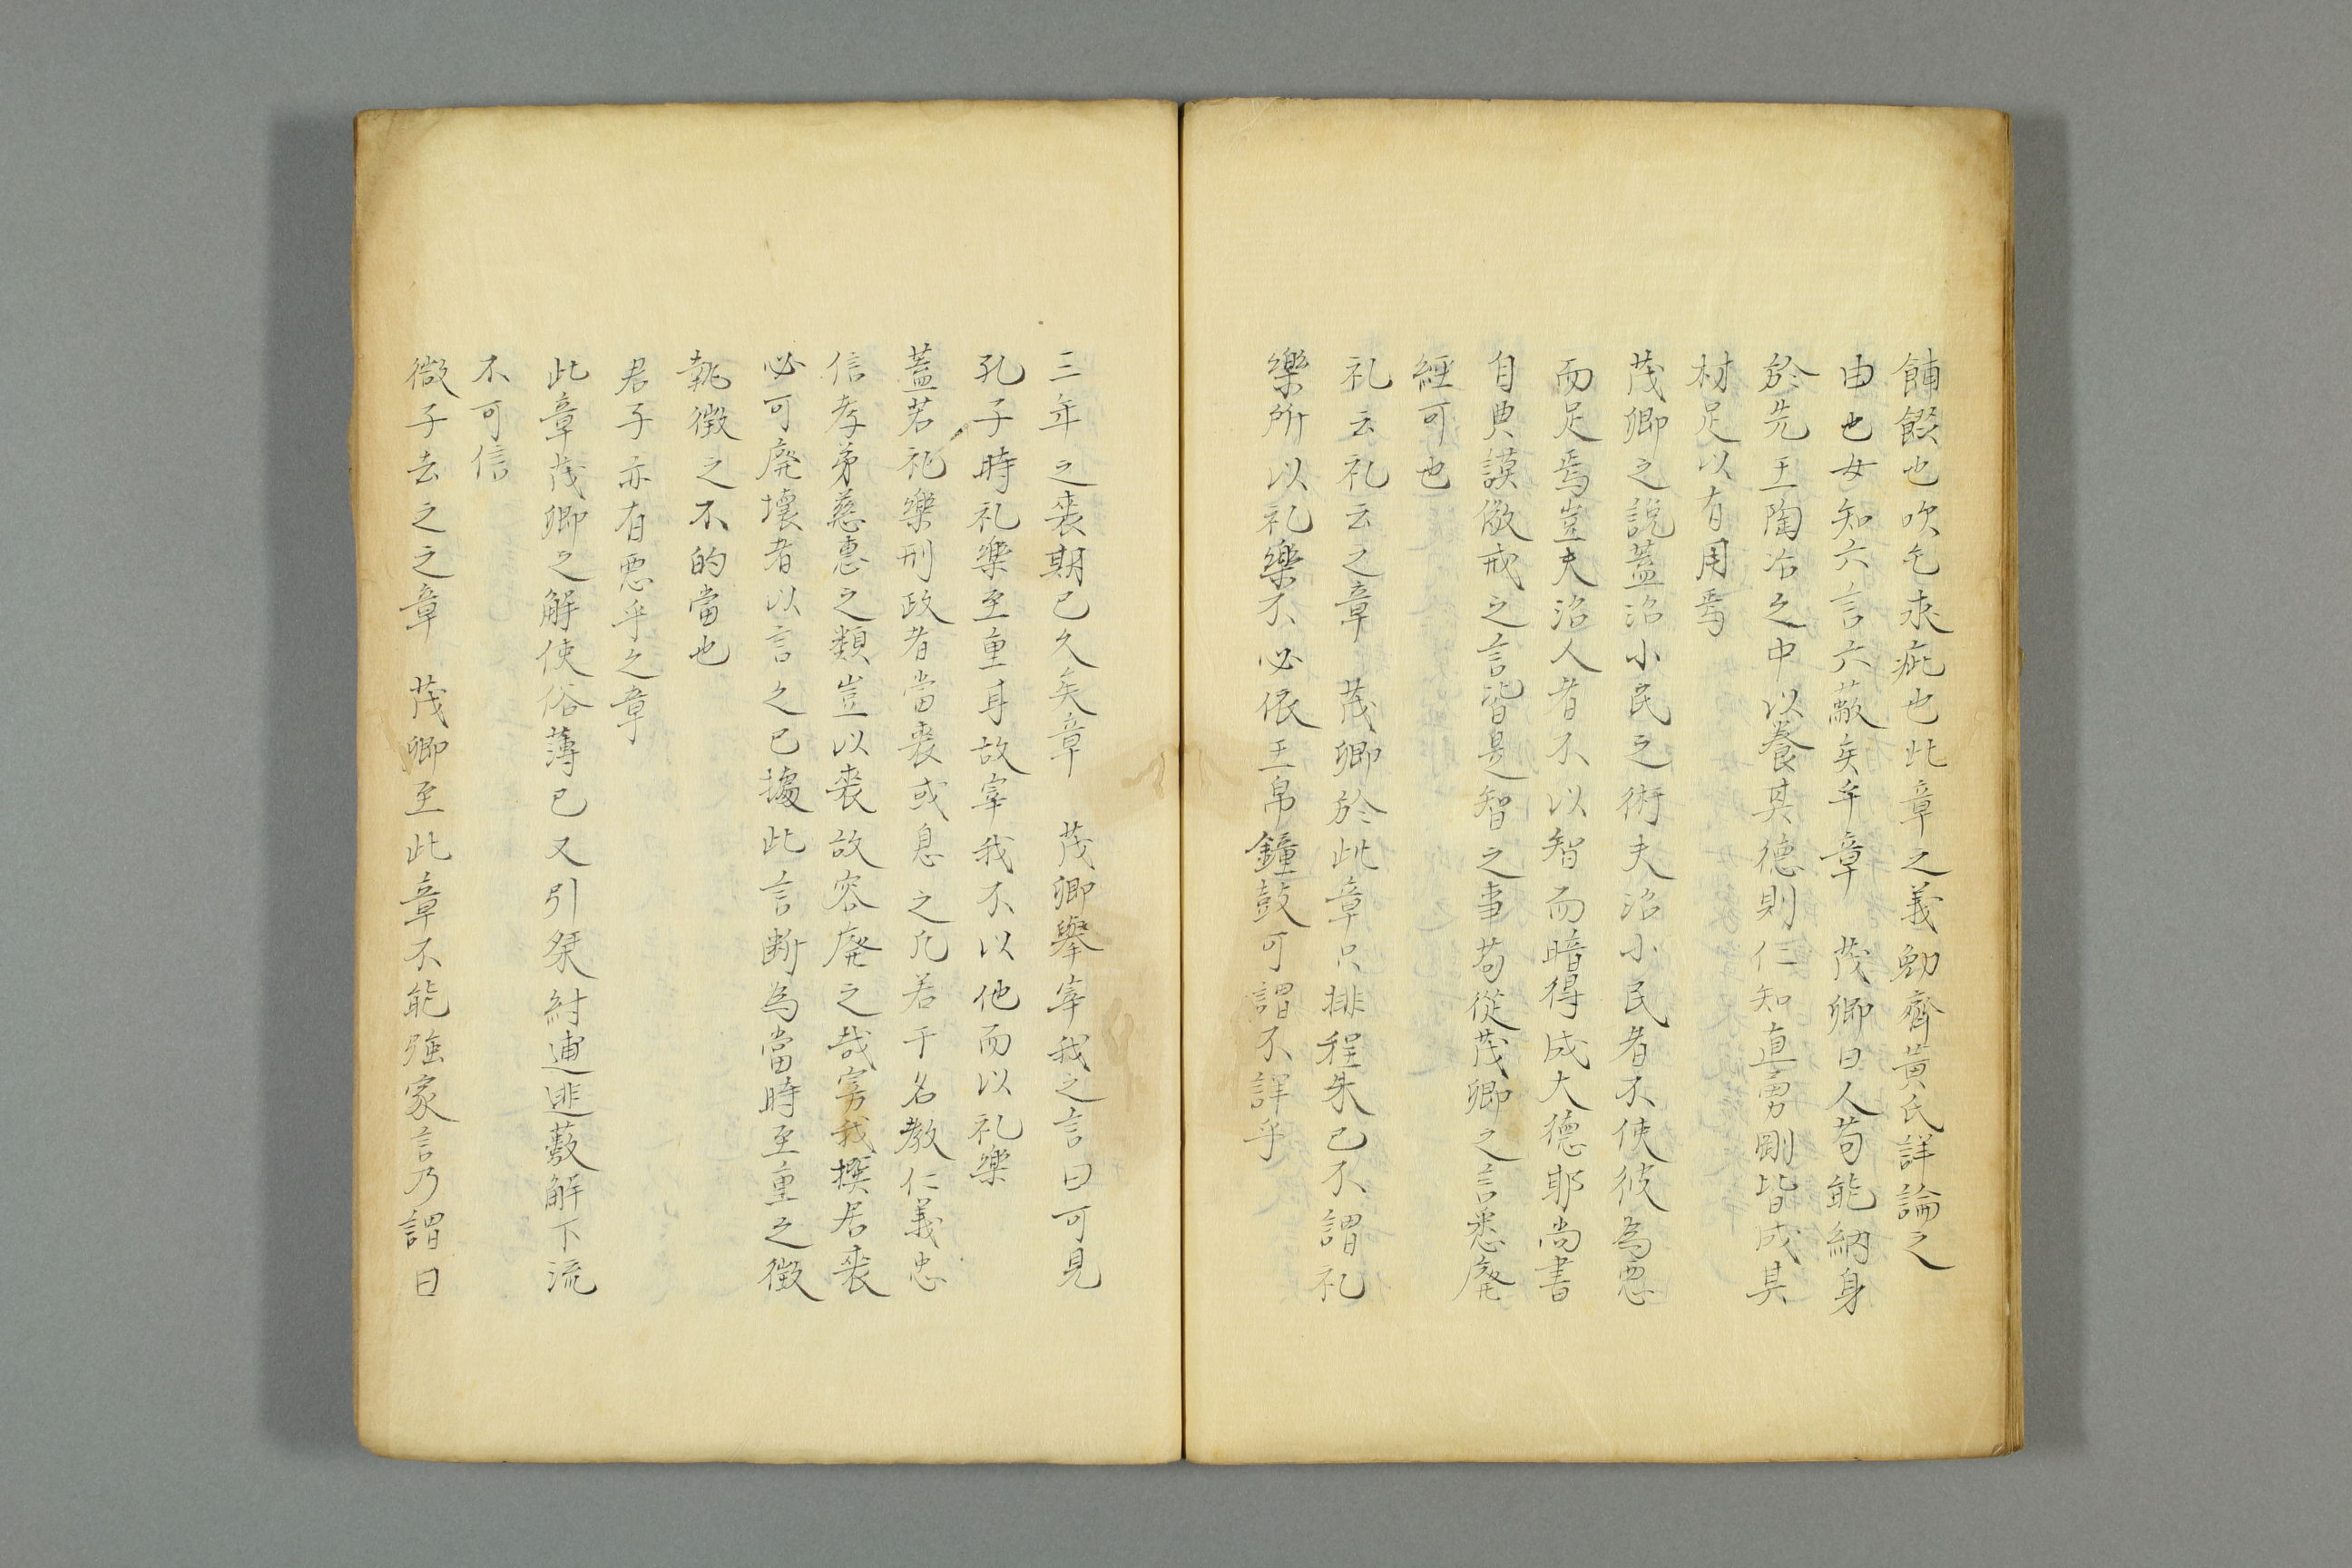 餔餟也吹乞求疵也此章之義勉齋黃氏詳論之
由也女知六言六蔽矣乎章　茂卿曰人苟能納身
於先王陶冶之中以養其德則仁知直勇剛皆成其
材足以有用焉
茂卿之說蓋治小民之術夫治小民者不使彼為惡
而足焉豈夫治人者不以智而暗得成大德耶尚書
自典謨儆戒之言皆是智之事苟從茂卿之言悉廃
經可也
礼云礼云之章　茂卿於此章只排程朱已不謂礼
樂所以礼樂不必依玉帛鐘鼓可謂不詳乎
三年之喪期已久矣章　茂卿舉宰我之言曰可見
孔子時礼樂至重耳故宰我不以他而以礼樂
蓋若礼樂刑政者當喪或息之凡若干名教仁義忠
信孝弟慈惠之類豈以喪故容廃之哉宰我撰居喪
必可廃壊者以言之已據此言断為當時至重之徴
執徴之不的當也
君子亦有悪乎之章
此章茂卿之解使俗薄已又引桀紂逋逃藪解下流
不可信
微子去之之章　茂卿至此章不能強家言乃謂曰